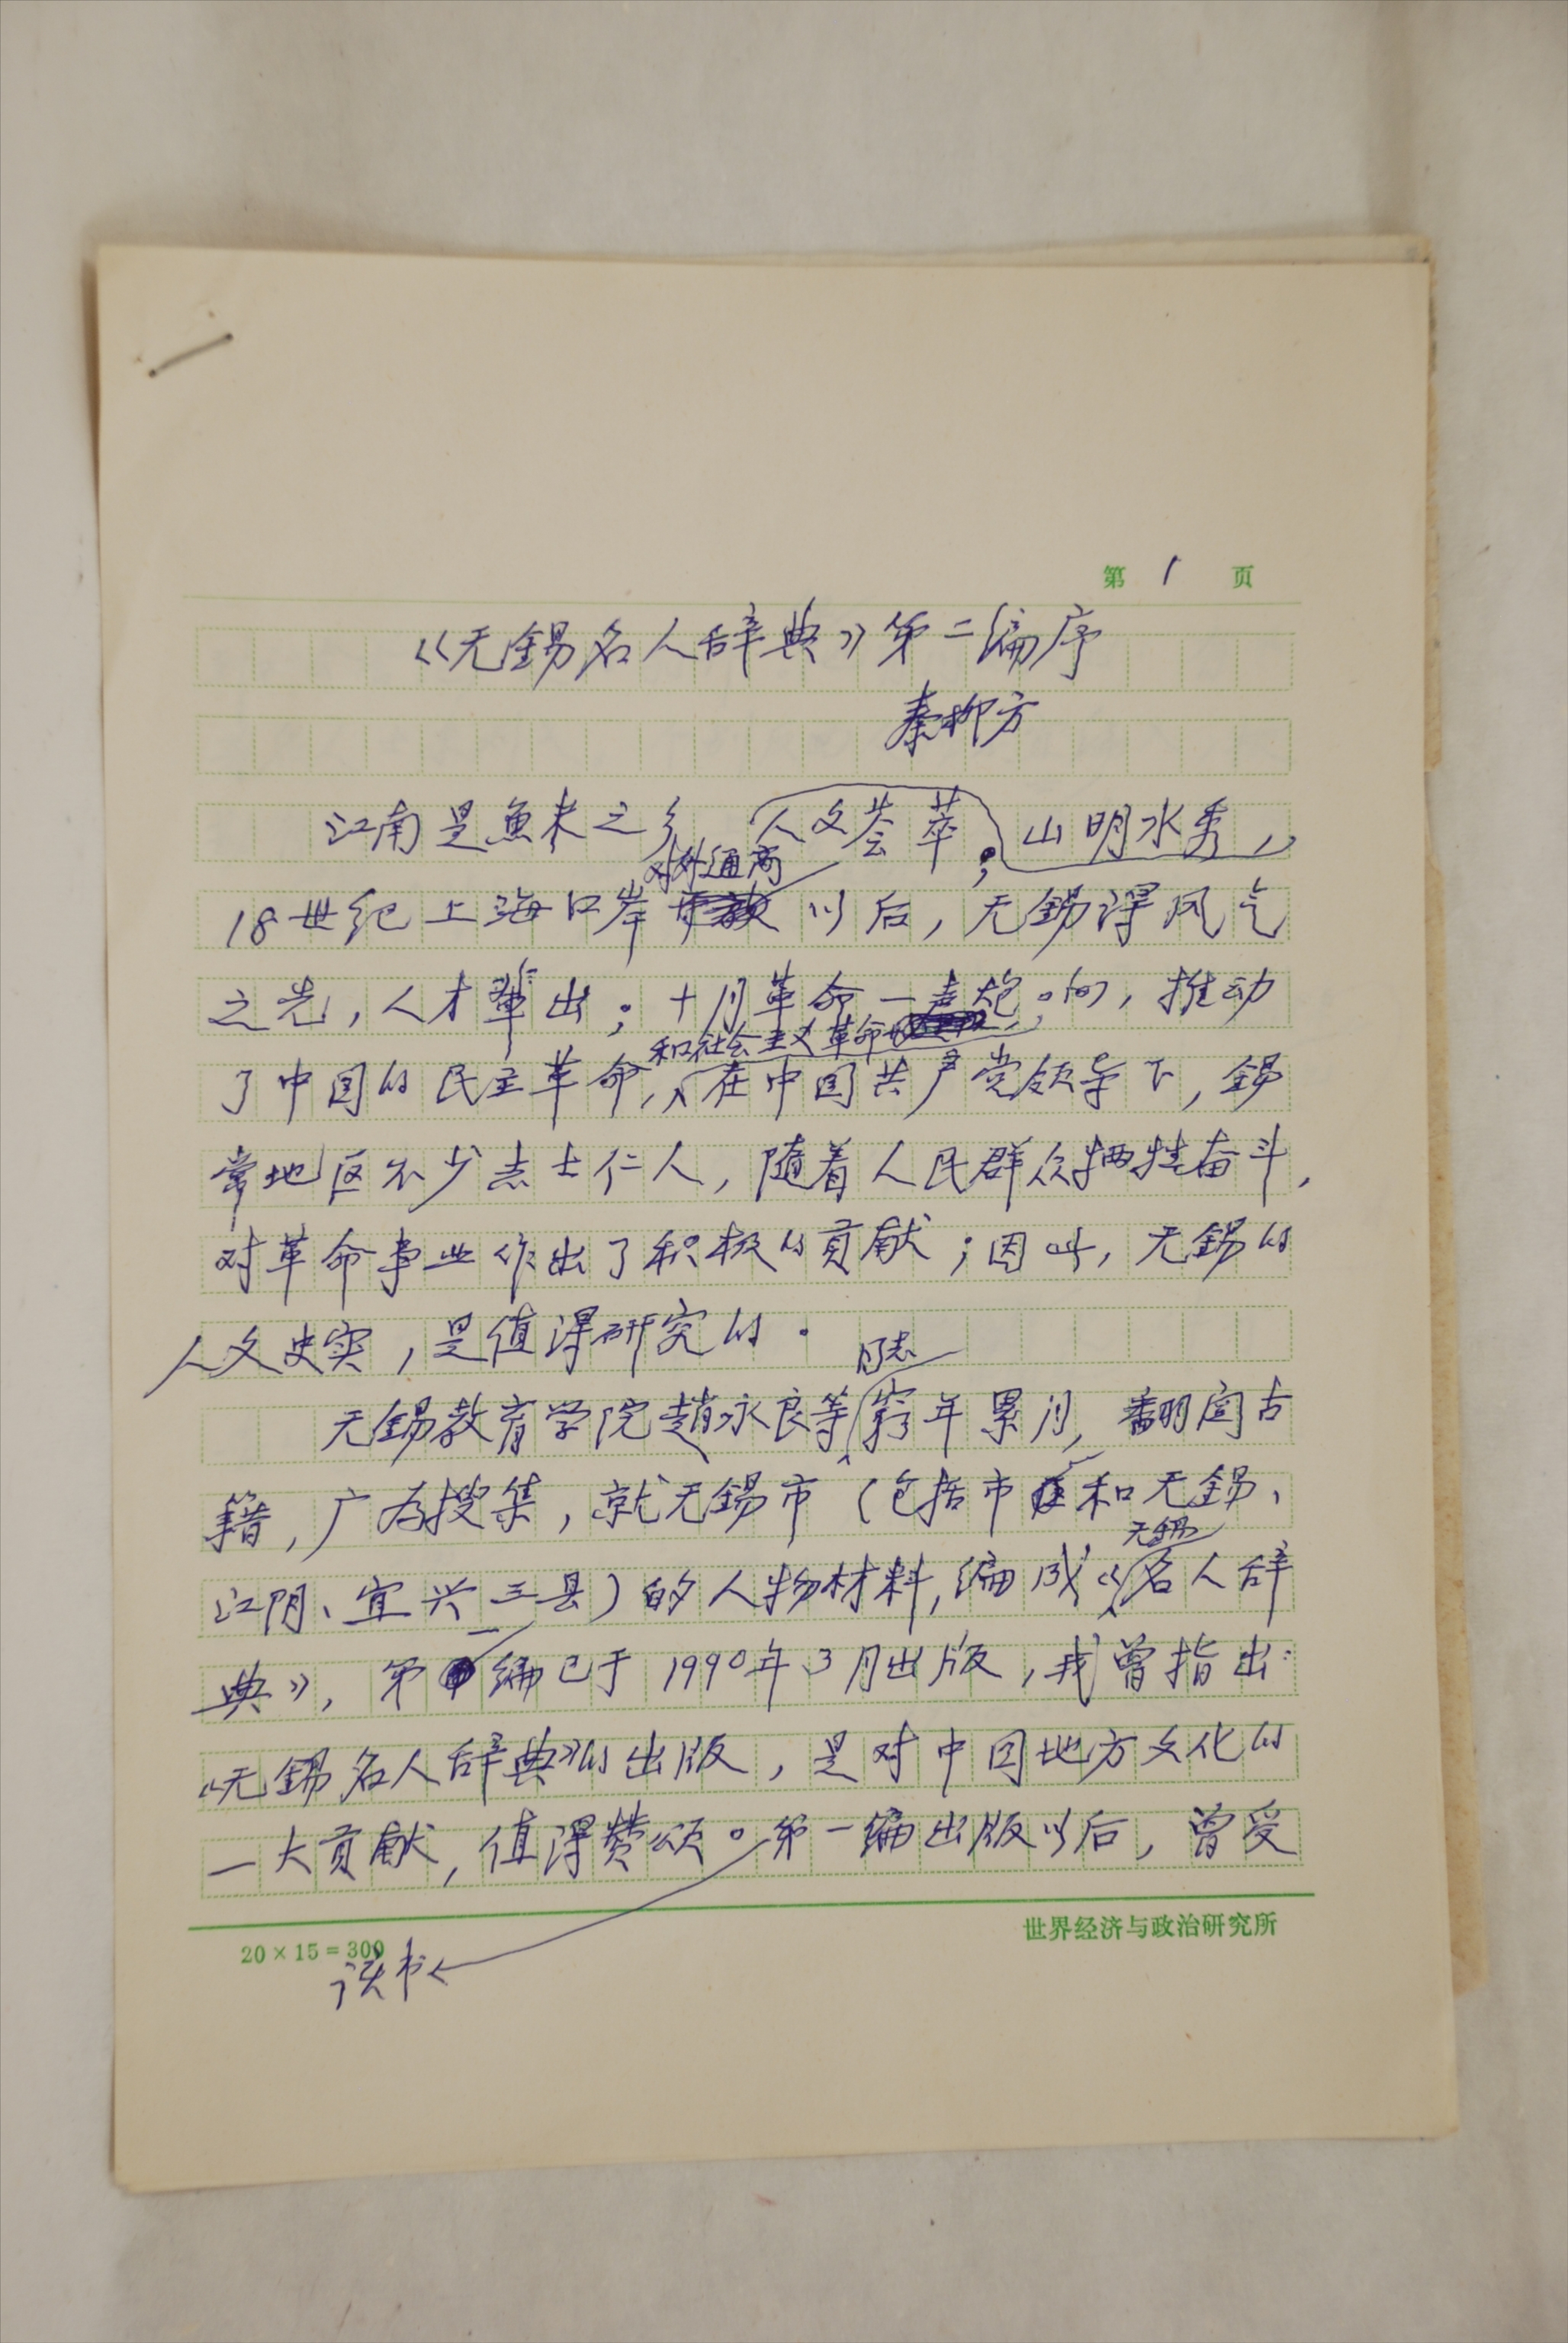 第 1 页
《无錫名人辞典》第二编序
秦柳方
江南是魚米之乡 人文荟萃, 山明水秀,
对外通商
18世纪上海口岸 以后,无錫得风气
之先,人才輩出;十月革命一声炮响,推动
和社会主义革命
了中国的民主革命,在中国共产党领导下,锡
常地区不少志士仁人,随着人民群众牺牲奋斗,
对革命事业作出了积极的贡献;因此,无錫的
人文史实,是值得研究的.
同志
无錫教育学院趙永良等穷年累月,翻阅古
籍,广为搜集,就无錫市(包括市区和无錫、
无錫
江阴、宜兴三县)的人物材料,编成《名人辞
一
典》,第编已于1990年3月出版,我曾指出:
《无錫名人辞典》的出版,是对中国地方文化的
一大贡献,值得赞颂。第一编出版以后,曾受
20×15=300
世界经济与政治研究所
读书